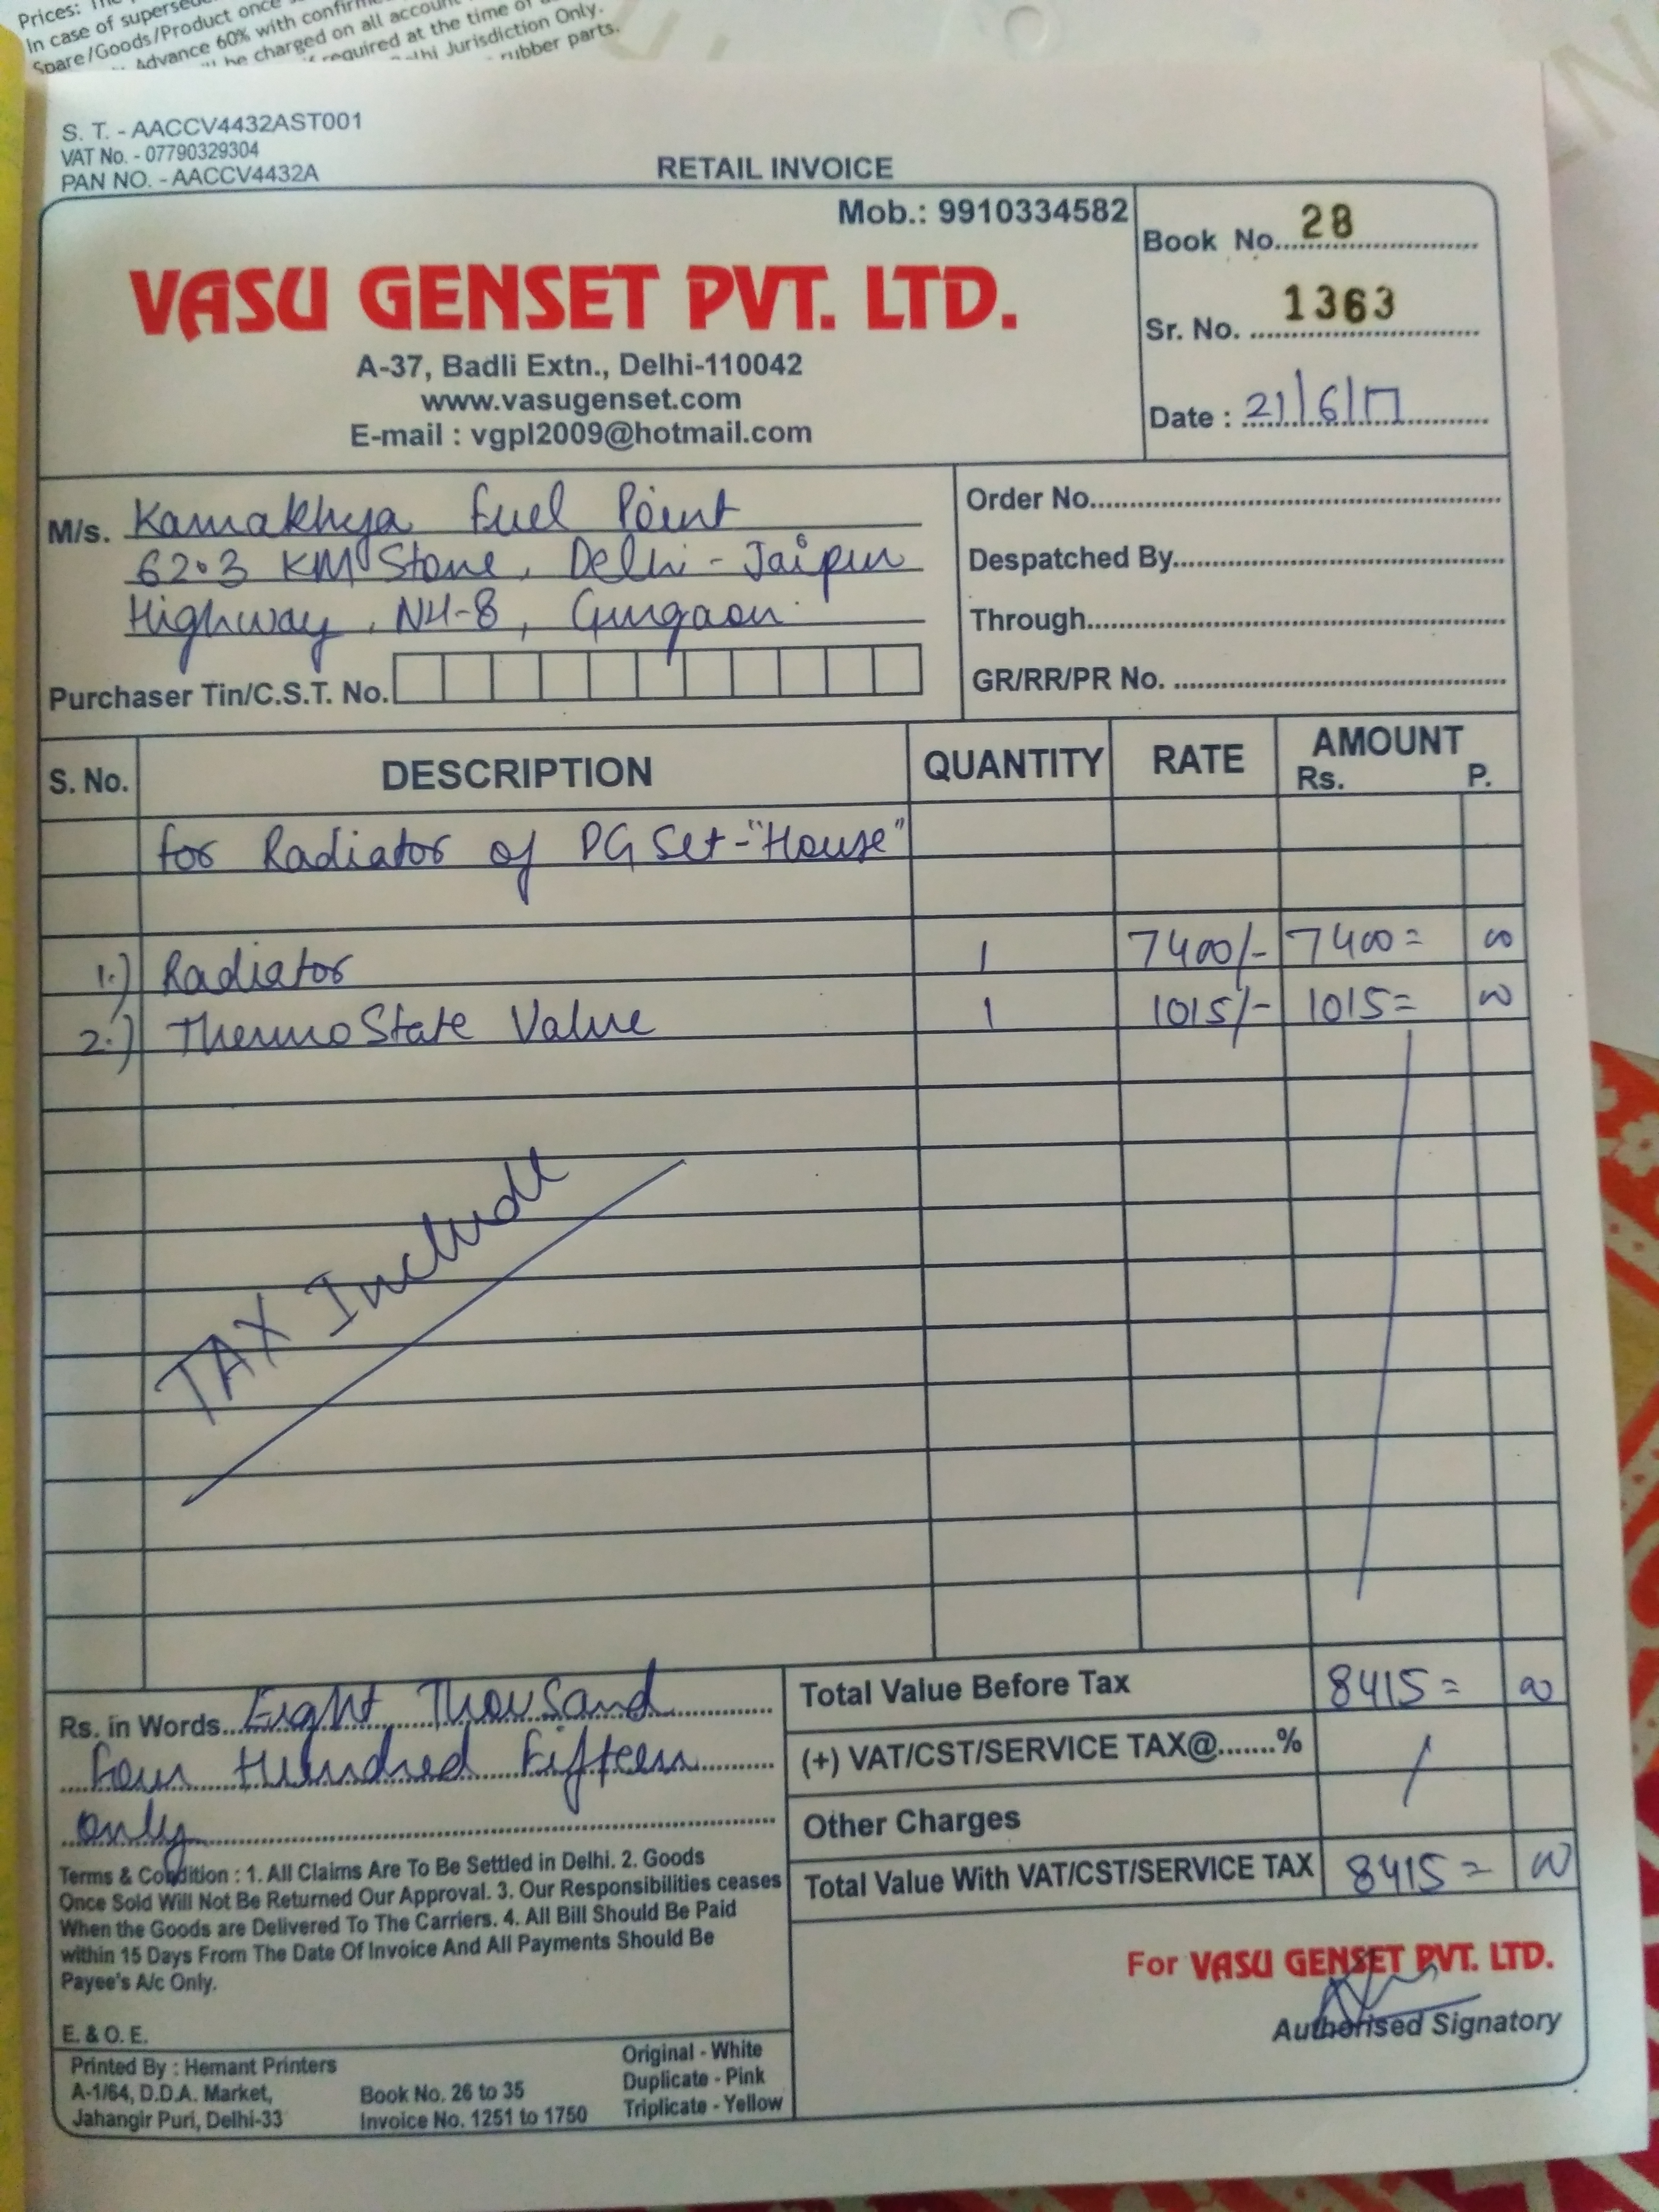 Prices: The
In case of supersed
Spare/Goods/Product once
Advance 60% with confirm
be charged on all account
required at the time of
Delhi Jurisdiction Only.
rubber parts.
S. T. - AACCV4432AST001
VAT No. - 07790329304
PAN NO. - AACCV4432A
RETAIL INVOICE
Mob.: 9910334582
VASU GENSET PVT. LTD.
A-37, Badli Extn., Delhi-110042
www.vasugenset.com
E-mail : vgpl2009@hotmail.com
Book No. 28
Sr. No. 1363
Date : 21/6/17
M/s. Kamakhya Fuel Point
62.3 KM Stone, Delhi - Jaipur
Highway, NH-8, Gurgaon
Purchaser Tin/C.S.T. No.
Order No.
Despatched By
Through
GR/RR/PR No.
S. No. DESCRIPTION QUANTITY RATE AMOUNT
Rs. P.
for Radiator of DG Set - "House"
1.) Radiator 1 7400/- 7400= 00
2.) Thermo State Valve 1 1015/- 1015= 00
TAX Include
Rs. in Words Eight Thousand
Four Hundred Fifteen
only
Total Value Before Tax 8415= 00
(+) VAT/CST/SERVICE TAX@.......%
Other Charges
Total Value With VAT/CST/SERVICE TAX 8415= 00
Terms & Condition : 1. All Claims Are To Be Settled in Delhi. 2. Goods
Once Sold Will Not Be Returned Our Approval. 3. Our Responsibilities ceases
When the Goods are Delivered To The Carriers. 4. All Bill Should Be Paid
within 15 Days From The Date Of Invoice And All Payments Should Be
Payee's A/c Only.
E. & O. E.
For VASU GENSET PVT. LTD.
Authorised Signatory
Printed By : Hemant Printers
A-1/64, D.D.A. Market,
Jahangir Puri, Delhi-33
Book No. 26 to 35
Invoice No. 1251 to 1750
Original - White
Duplicate - Pink
Triplicate - Yellow